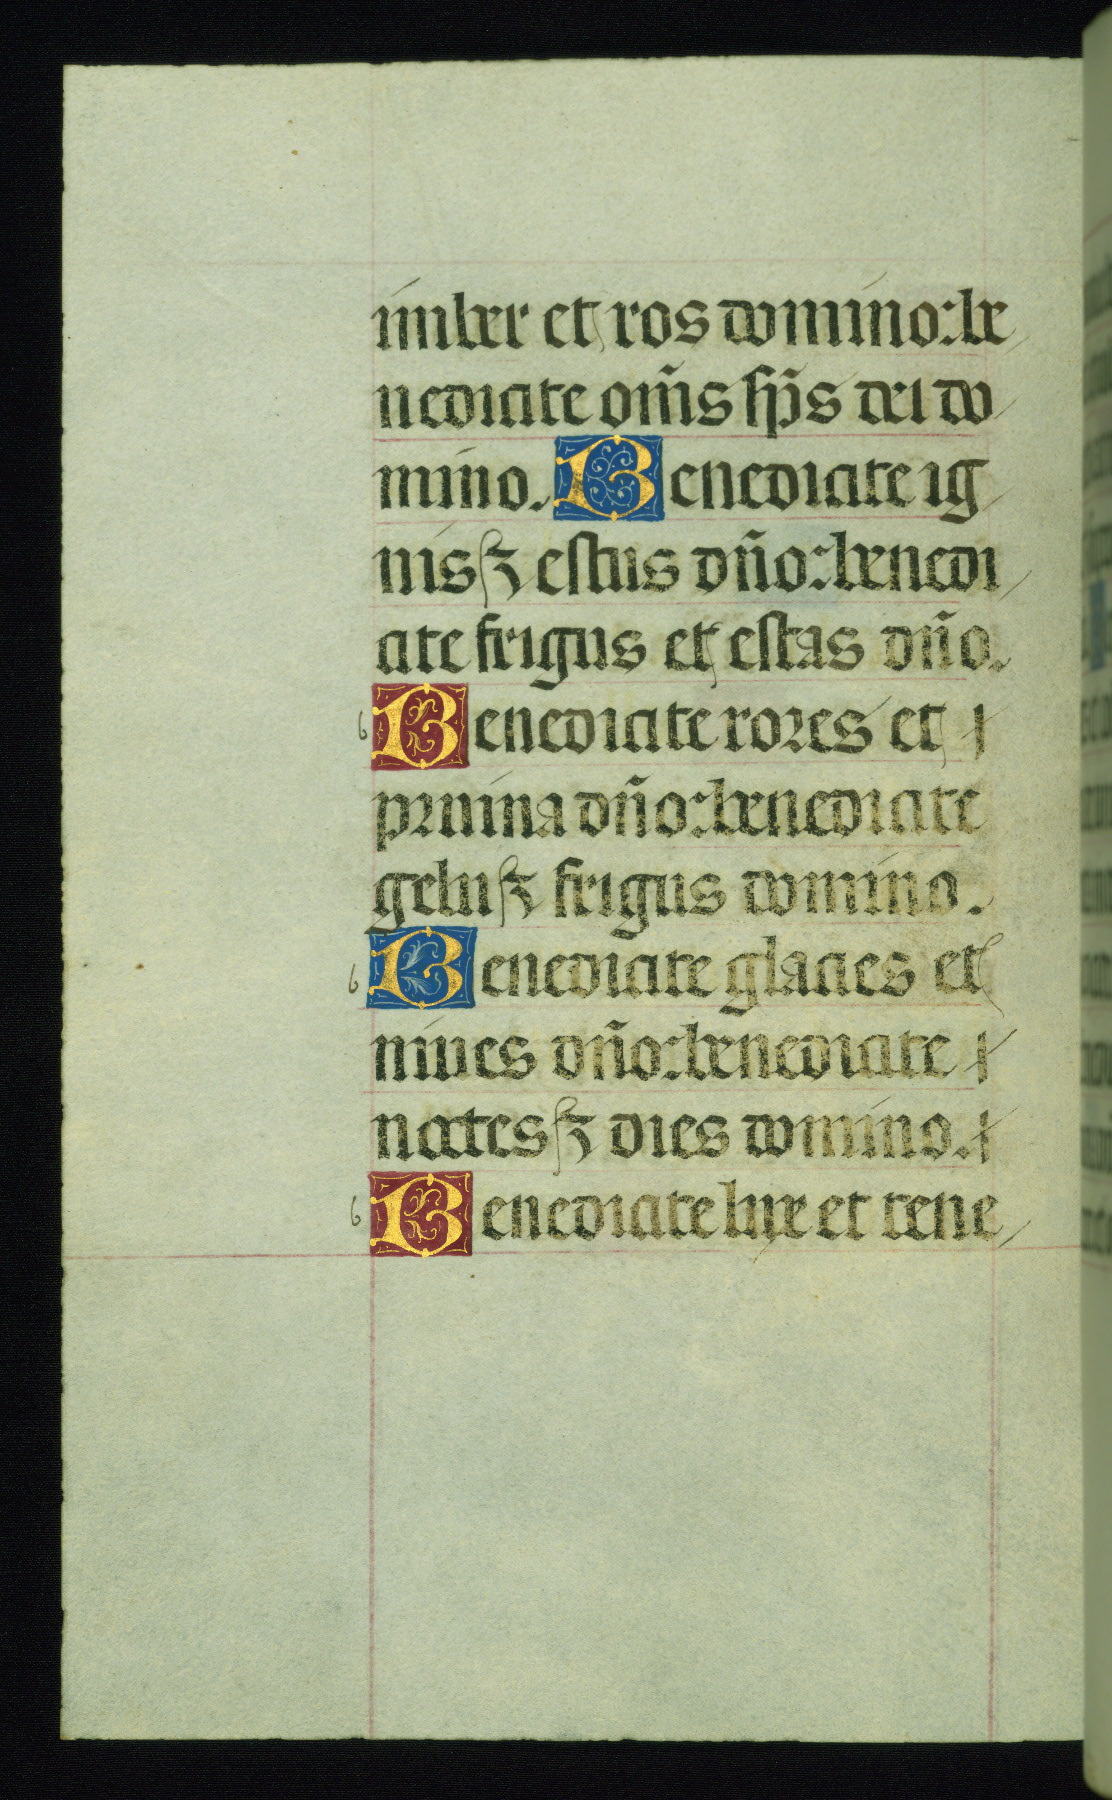 imber et ros domino: be
nedicite om̄s sp̄s dei do
mino. Benedicite ig
nis ⁊ estus dn̄o: benedi
cite frigus et estas dn̄o.
b Benedicite rores et
pruina dn̄o: benedicite
gelu ⁊ frigus domino.
b Benedicite glacies et
nives dn̄o: benedicite
noctes ⁊ dies domino.
b Benedicite lux et tene